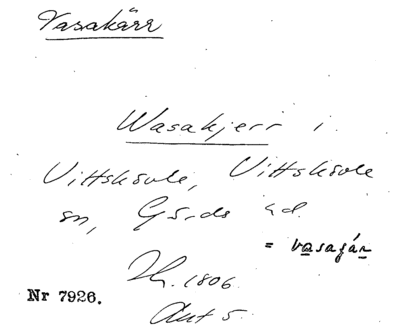 Vasakärr
Wasakjerr i
Vittskövle, Vittskövle
sn, Gärds hd.
= vasajár
1806.
Nr 7926.
Akt 5.